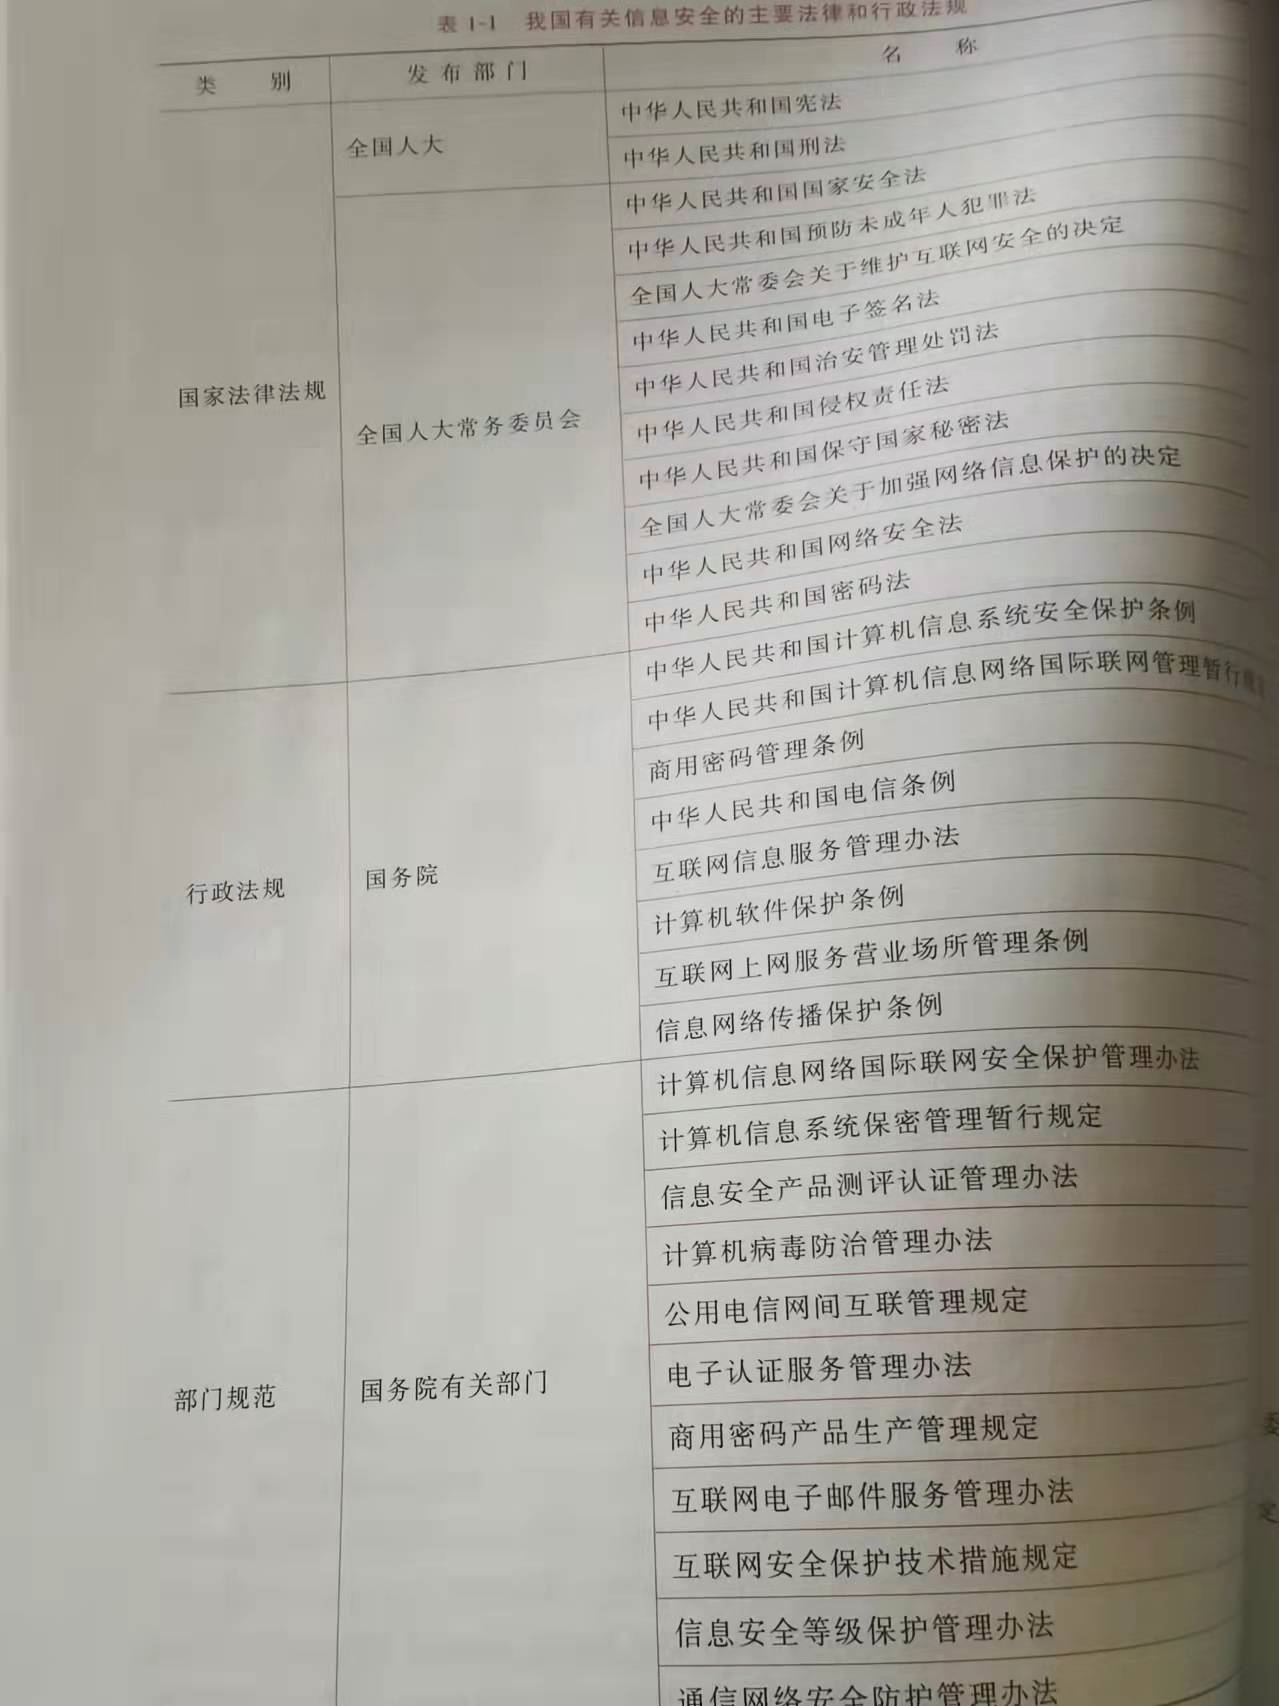 表 1-1 我国有关信息安全的主要法律和行政法规
类 别 发布部门 名 称
国家法律法规
全国人大
中华人民共和国宪法
中华人民共和国刑法
全国人大常务委员会
中华人民共和国国家安全法
中华人民共和国预防未成年人犯罪法
全国人大常委会关于维护互联网安全的决定
中华人民共和国电子签名法
中华人民共和国治安管理处罚法
中华人民共和国侵权责任法
中华人民共和国保守国家秘密法
全国人大常委会关于加强网络信息保护的决定
中华人民共和国网络安全法
中华人民共和国密码法
行政法规
国务院
中华人民共和国计算机信息系统安全保护条例
中华人民共和国计算机信息网络国际联网管理暂行规定
商用密码管理条例
中华人民共和国电信条例
互联网信息服务管理办法
计算机软件保护条例
互联网上网服务营业场所管理条例
信息网络传播保护条例
部门规范
国务院有关部门
计算机信息网络国际联网安全保护管理办法
计算机信息系统保密管理暂行规定
信息安全产品测评认证管理办法
计算机病毒防治管理办法
公用电信网间互联管理规定
电子认证服务管理办法
商用密码产品生产管理规定
互联网电子邮件服务管理办法
互联网安全保护技术措施规定
信息安全等级保护管理办法
通信网络安全防护管理办法